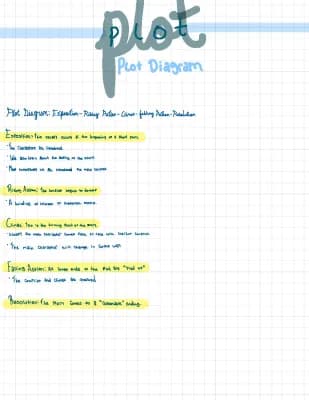 plot
PLOT
Plot Diagram
Plot Diagram: Exposition - Rising Action - Climax - Falling Action - Resolution
Exposition: This usually occurs at the beginning of a short story.
The characters are introduced.
We also learn about the setting of the story.
Most importantly we are introduced the main conflict
Rising Action: The conflict begins to
A building of interest or suspense occurs.
Climax: This is the turning point of the story.
the main character comes face to face with conflict
The main character will change in some way
Falling Action: All loose ends of the plot are "tied up"
The conflict and climax are resolved
Resolution: The story comes to a "reasonable" ending.